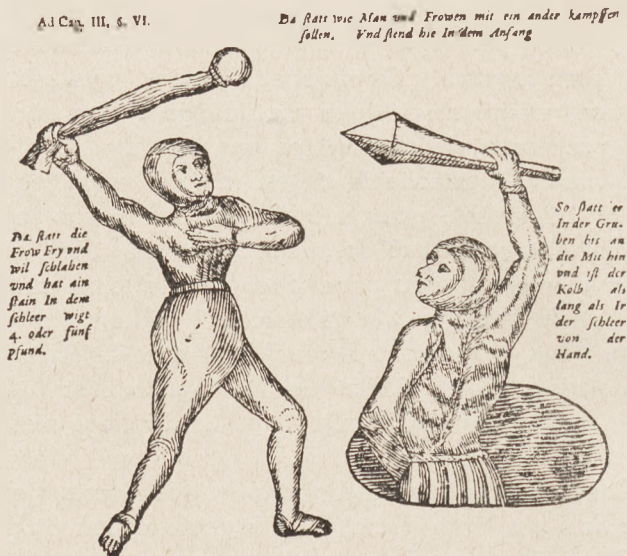 Ad Cap. III, §. VI.
Da statt wie Man und Frowen mit ein ander kampffen
sollen. Und stend hie In dem Anfang
Da statt die
Frow Fry und
wil schlahen
und hat ain
stain In dem
schleer wigt
4. oder funf
pfund.
So statt er
In der Gru-
ben bis an
die Mit hin
und ist der
Kolb als
lang als Ir
der schleer
von der
Hand.